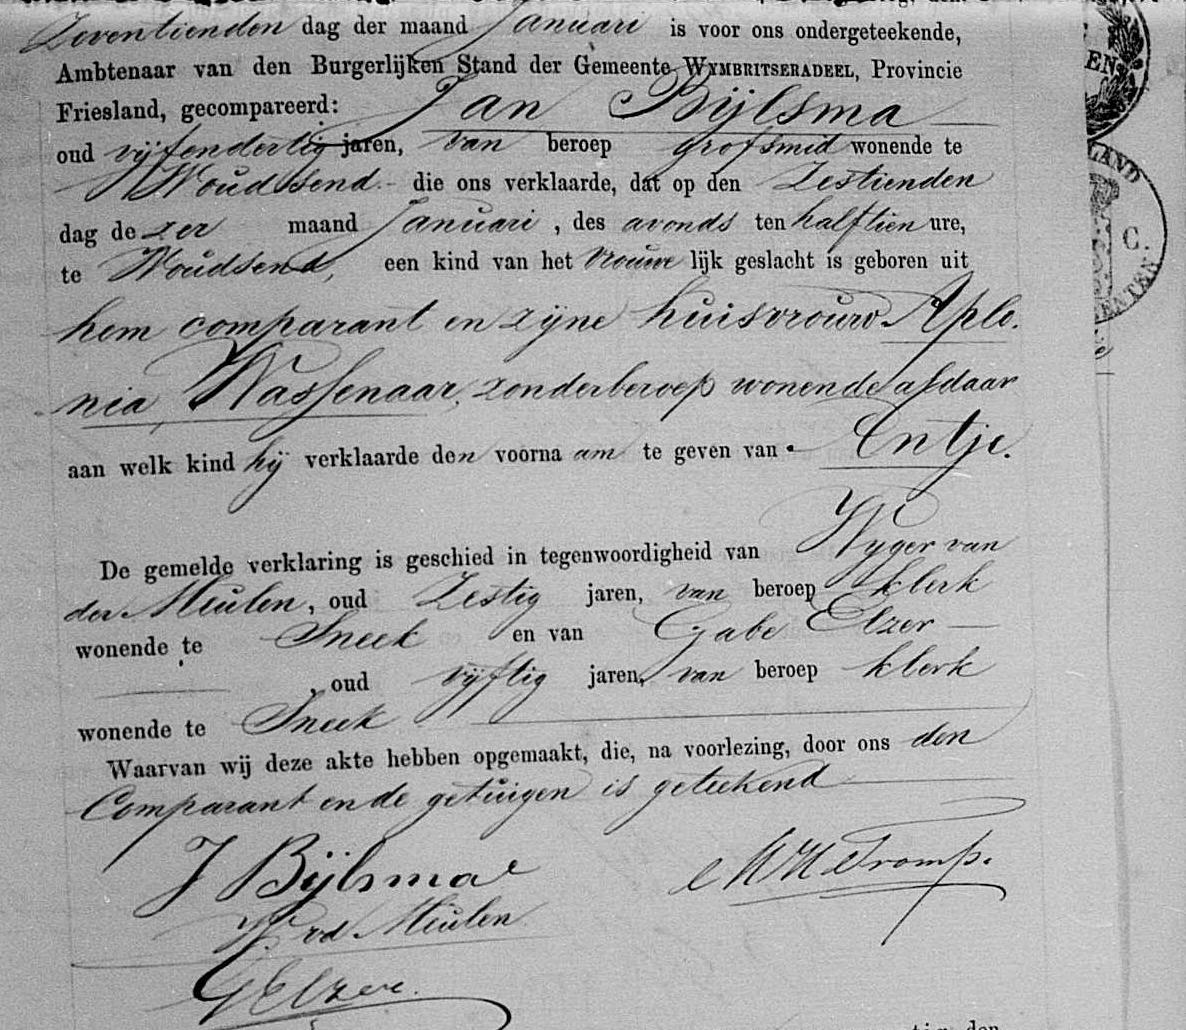 Zeventienden dag der maand Januari is voor ons ondergeteekende,
Ambtenaar van den Burgerlijken Stand der Gemeente WYMBRITSERADEEL, Provincie
Friesland, gecompareerd: Jan Bijlsma
oud vijfendertig jaren, van beroep grofsmid wonende te
Woudsend die ons verklaarde, dat op den Zestienden
dag dezer maand Januari, des avonds ten halftien ure,
te Woudsend, een kind van het vrouwelijk geslacht is geboren uit
hem comparant en zijne huisvrouw Aplo.
nia Wassenaar, zonder beroep wonende aldaar
aan welk kind hij verklaarde den voornaam te geven van Entje.
De gemelde verklaring is geschied in tegenwoordigheid van Wyger van
der Meulen, oud Zestig jaren, van beroep klerk
wonende te Sneek en van Gabe Elzer
, oud vijftig jaren, van beroep klerk
wonende te Sneek
Waarvan wij deze akte hebben opgemaakt, die, na voorlezing, door ons den
Comparant en de getuigen is geteekend
J Bijlsma MHTromp.
W vd Meulen
GElzer.
LAND
C.
ENTEN